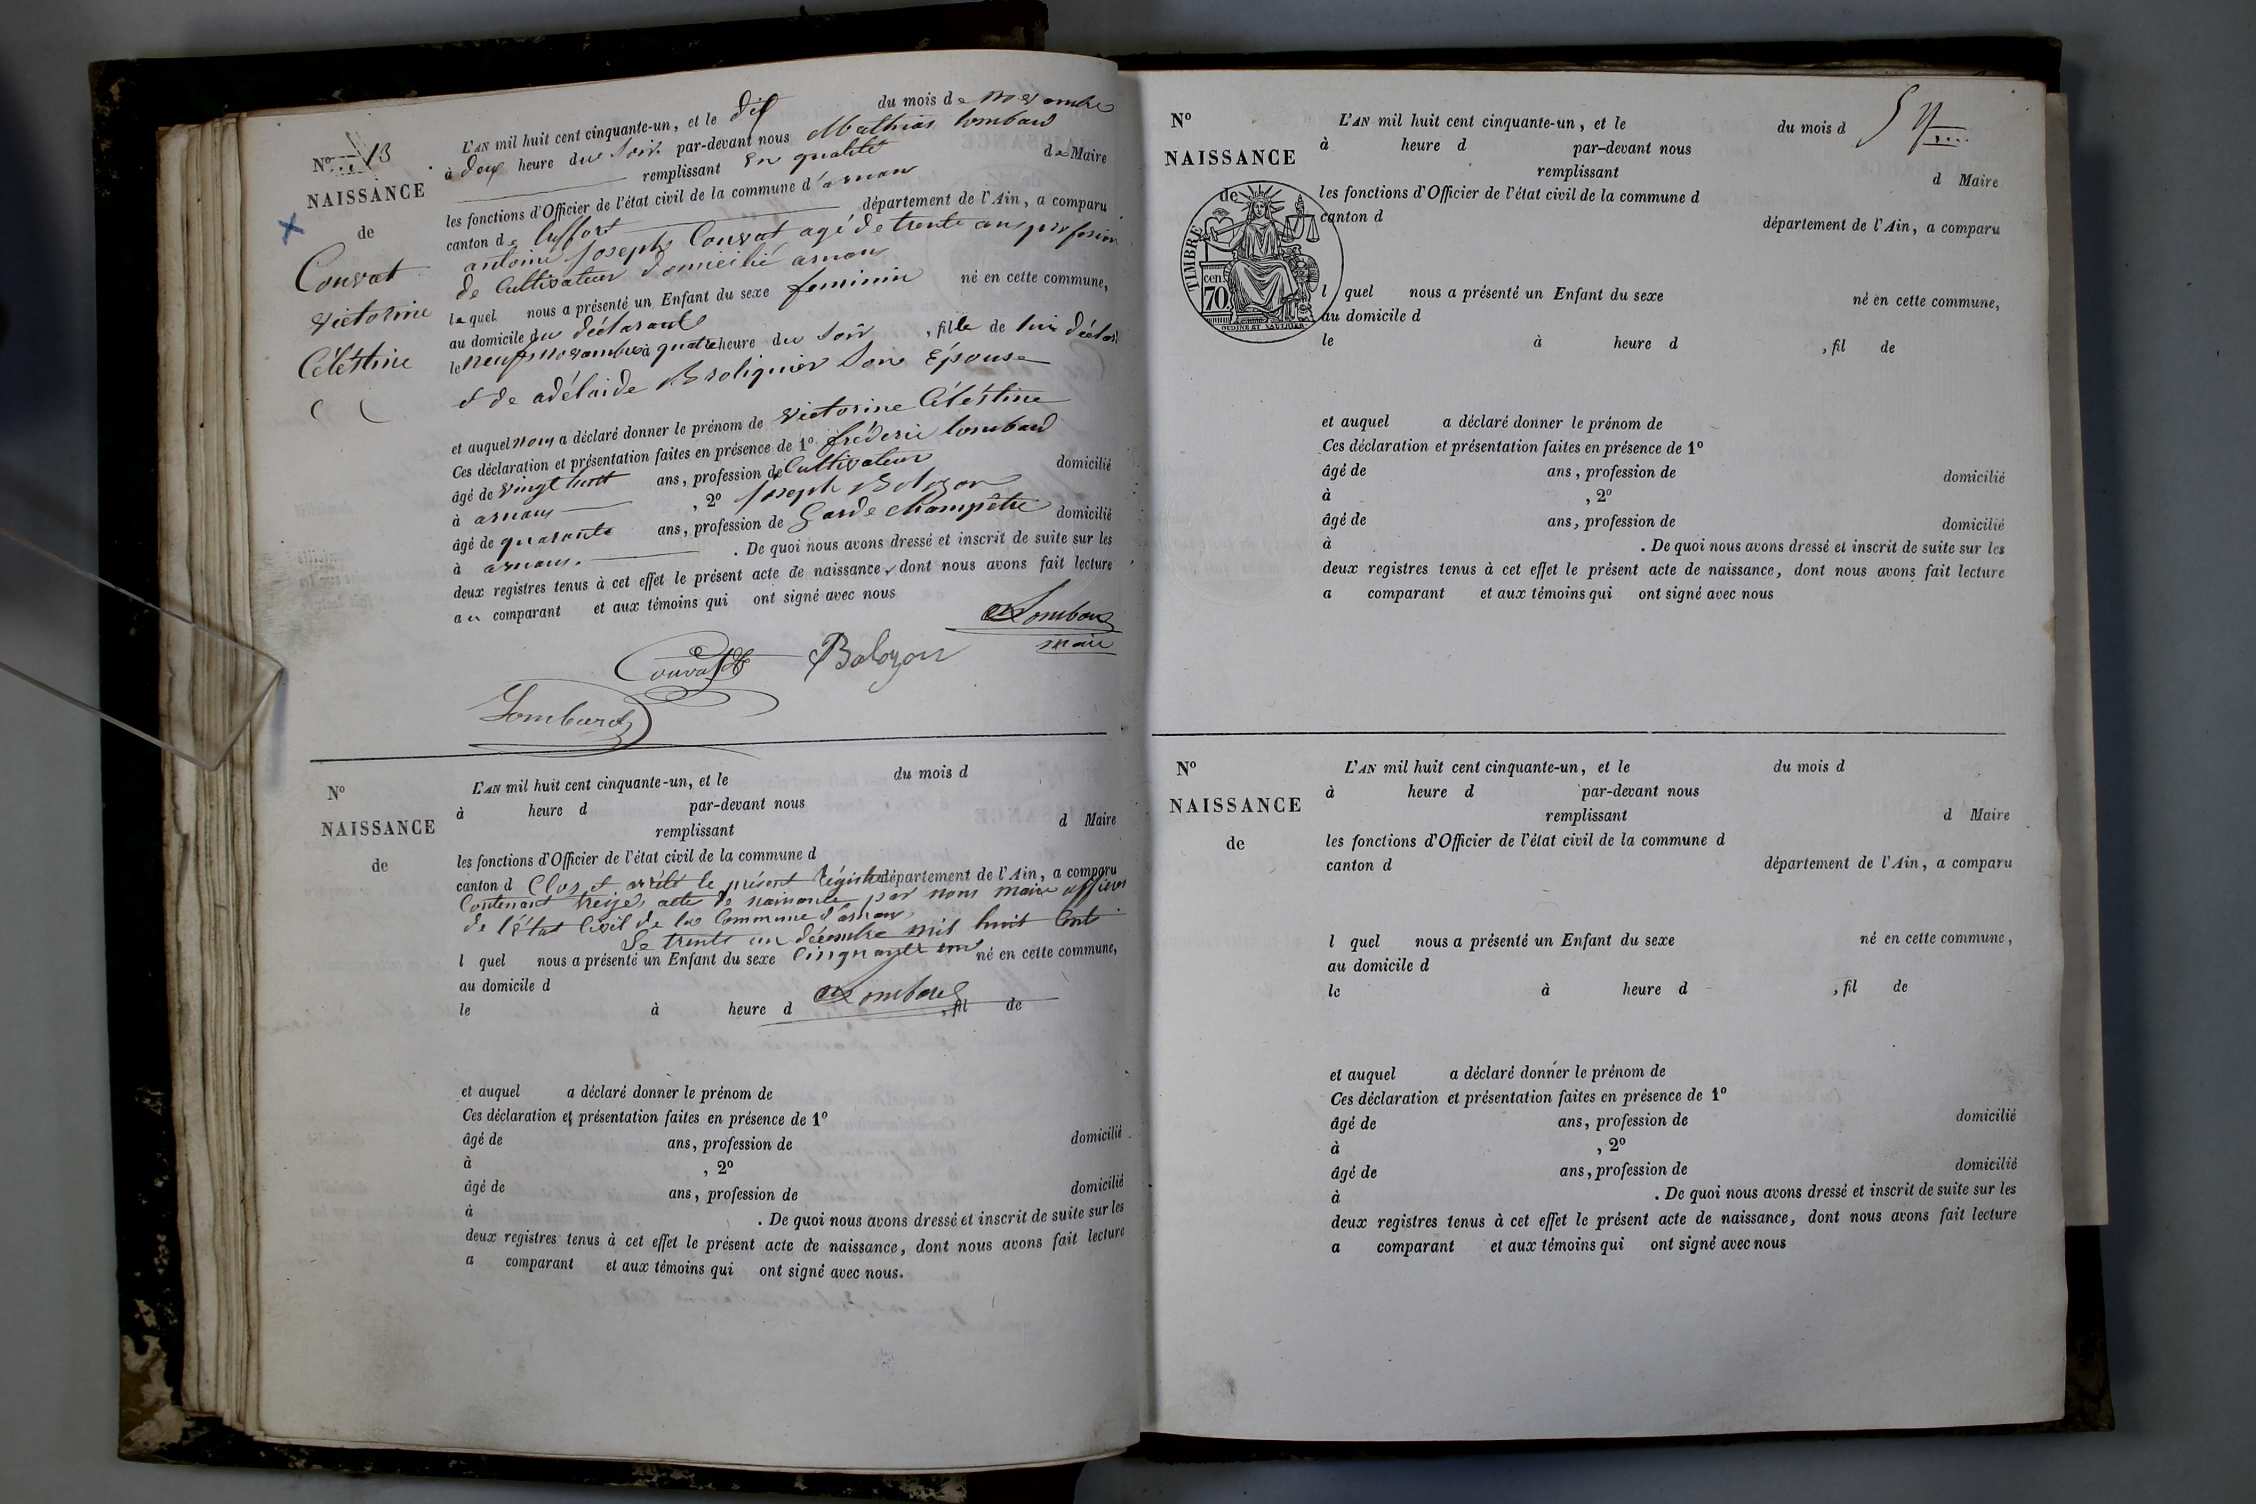 L'AN mil huit cent cinquante-un, et le dix du mois de novembre
N° 13
à deux heure du soir par-devant nous Mathias Lombard
remplissant en qualité de Maire
NAISSANCE
les fonctions d'Officier de l'état civil de la commune d'arnan
de
canton de département de l'Ain, a comparu
antoine joseph Convat agé de trente ans profession
Convat
de Cultivateur domicilié arnan
Victorine
lequel nous a présenté un Enfant du sexe feminin né en cette commune,
au domicile du déclarant
Céléstine
le neuf novambre à quatre heure du soir, fille de lui déclar
et de adélaide Broliquier son Epouse
et auquel nous a déclaré donner le prénom de Victorine Céléstine
Ces déclaration et présentation faites en présence de 1° fréderic Lombard
âgé de vingt huit ans, profession de Cultivateur domicilié
à arnans, 2° joseph Bolozon
âgé de quarante ans, profession de Garde champêtre domicilié
à arnans. De quoi nous avons dressé et inscrit de suite sur les
deux registres tenus à cet effet le présent acte de naissance, dont nous avons fait lecture
au comparant et aux témoins qui ont signé avec nous
Lombard
maire
Convat Bolozon
Lombard
N°
L'AN mil huit cent cinquante-un, et le du mois d
à heure d par-devant nous
NAISSANCE
remplissant d Maire
de
les fonctions d'Officier de l'état civil de la commune d
canton d Clos et arrêté le présent Régistre département de l'Ain, a comparu
Contenant treize acte de naissante par nous maire officier
de l'état Civil de la Commune d'arnan
Le trente un décembre mil huit Cent
l quel nous a présenté un Enfant du sexe Cinquante un né en cette commune,
au domicile d
Lombard
le à heure d , fil de
et auquel a déclaré donner le prénom de
Ces déclaration et présentation faites en présence de 1°
âgé de ans, profession de domicilié
à , 2°
âgé de ans, profession de domicilié
à . De quoi nous avons dressé et inscrit de suite sur les
deux registres tenus à cet effet le présent acte de naissance, dont nous avons fait lecture
a comparant et aux témoins qui ont signé avec nous.
N°
L'AN mil huit cent cinquante-un, et le du mois d
à heure d par-devant nous
NAISSANCE
remplissant d Maire
de
les fonctions d'Officier de l'état civil de la commune d
canton d département de l'Ain, a comparu
TIMBRE
cen.
70
l quel nous a présenté un Enfant du sexe né en cette commune,
au domicile d
le à heure d , fil de
et auquel a déclaré donner le prénom de
Ces déclaration et présentation faites en présence de 1°
âgé de ans, profession de domicilié
à , 2°
âgé de ans, profession de domicilié
à . De quoi nous avons dressé et inscrit de suite sur les
deux registres tenus à cet effet le présent acte de naissance, dont nous avons fait lecture
a comparant et aux témoins qui ont signé avec nous
N°
L'AN mil huit cent cinquante-un, et le du mois d
à heure d par-devant nous
NAISSANCE
remplissant d Maire
de
les fonctions d'Officier de l'état civil de la commune d
canton d département de l'Ain, a comparu
l quel nous a présenté un Enfant du sexe né en cette commune,
au domicile d
le à heure d , fil de
et auquel a déclaré donner le prénom de
Ces déclaration et présentation faites en présence de 1°
âgé de ans, profession de domicilié
à , 2°
âgé de ans, profession de domicilié
à . De quoi nous avons dressé et inscrit de suite sur les
deux registres tenus à cet effet le présent acte de naissance, dont nous avons fait lecture
a comparant et aux témoins qui ont signé avec nous